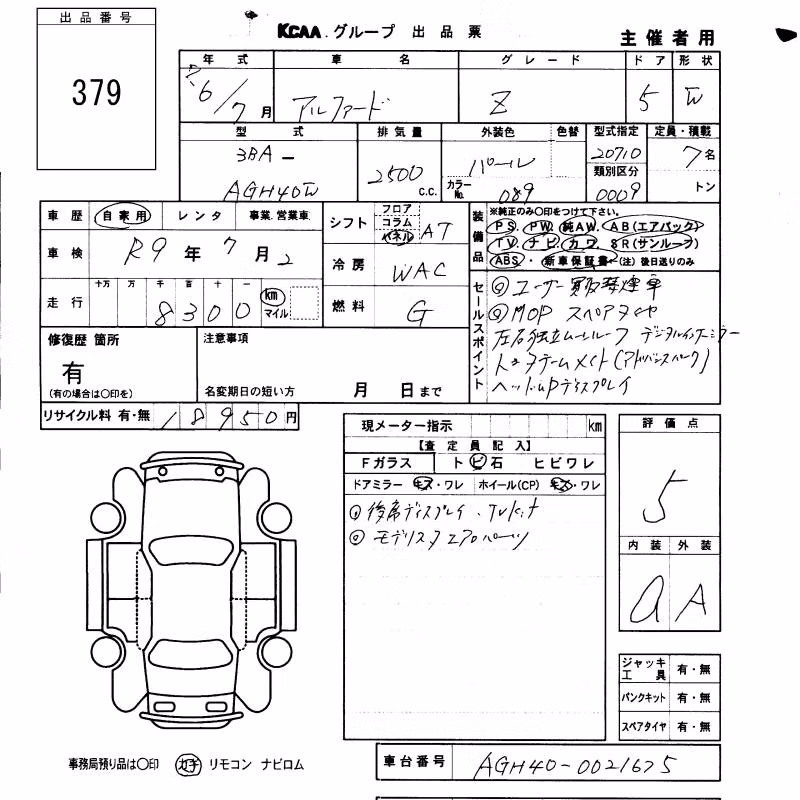 出品番号
379
KCAA.グループ 出品票
主催者用
年式 車名 グレード ドア 形状
R6/7月 アルファード Z 5 W
型式 排気量 外装色 色替 型式指定 定員・積載
3BA- AGH40W 2500 c.c. パール カラーNo. 089 20710 7名
類別区分 0009 トン
車歴 自家用 レンタ 事業.営業車
車検 R9年 7月 2
走行 十万 万 千 百 十 一 km マイル
8300
シフト フロア コラム パネル AT
冷房 WAC
燃料 G
装備品 ※純正のみ〇印をつけて下さい。
PS. PW. 純AW. AB(エアバック)
TV. ナビ. カワ. SR(サンルーフ)
ABS. 新車保証書 (注)後日送りのみ
セールスポイント
◎ユーザー買取禁煙車
◎MOP スペアタイヤ
左右独立ムーンルーフ デジタルインナーミラー
トヨタチームメイト(アドバンスパーク)
ヘッドUPディスプレイ
修復歴 箇所
有
(有の場合は〇印を)
注意事項
名変期日の短い方 月 日まで
リサイクル料 有・無 18950円
現メーター指示 km
【査定員記入】
Fガラス トビ石 ヒビワレ
ドアミラー キズ・ワレ ホイール(CP) キズ・ワレ
◎後席ディスプレイ、TVキット
◎モデリスタエアロパーツ
評価点
5
内装 外装
a A
ジャッキ工具 有・無
パンクキット 有・無
スペアタイヤ 有・無
事務局預り品は〇印 カチ リモコン ナビロム
車台番号 AGH40-0021675